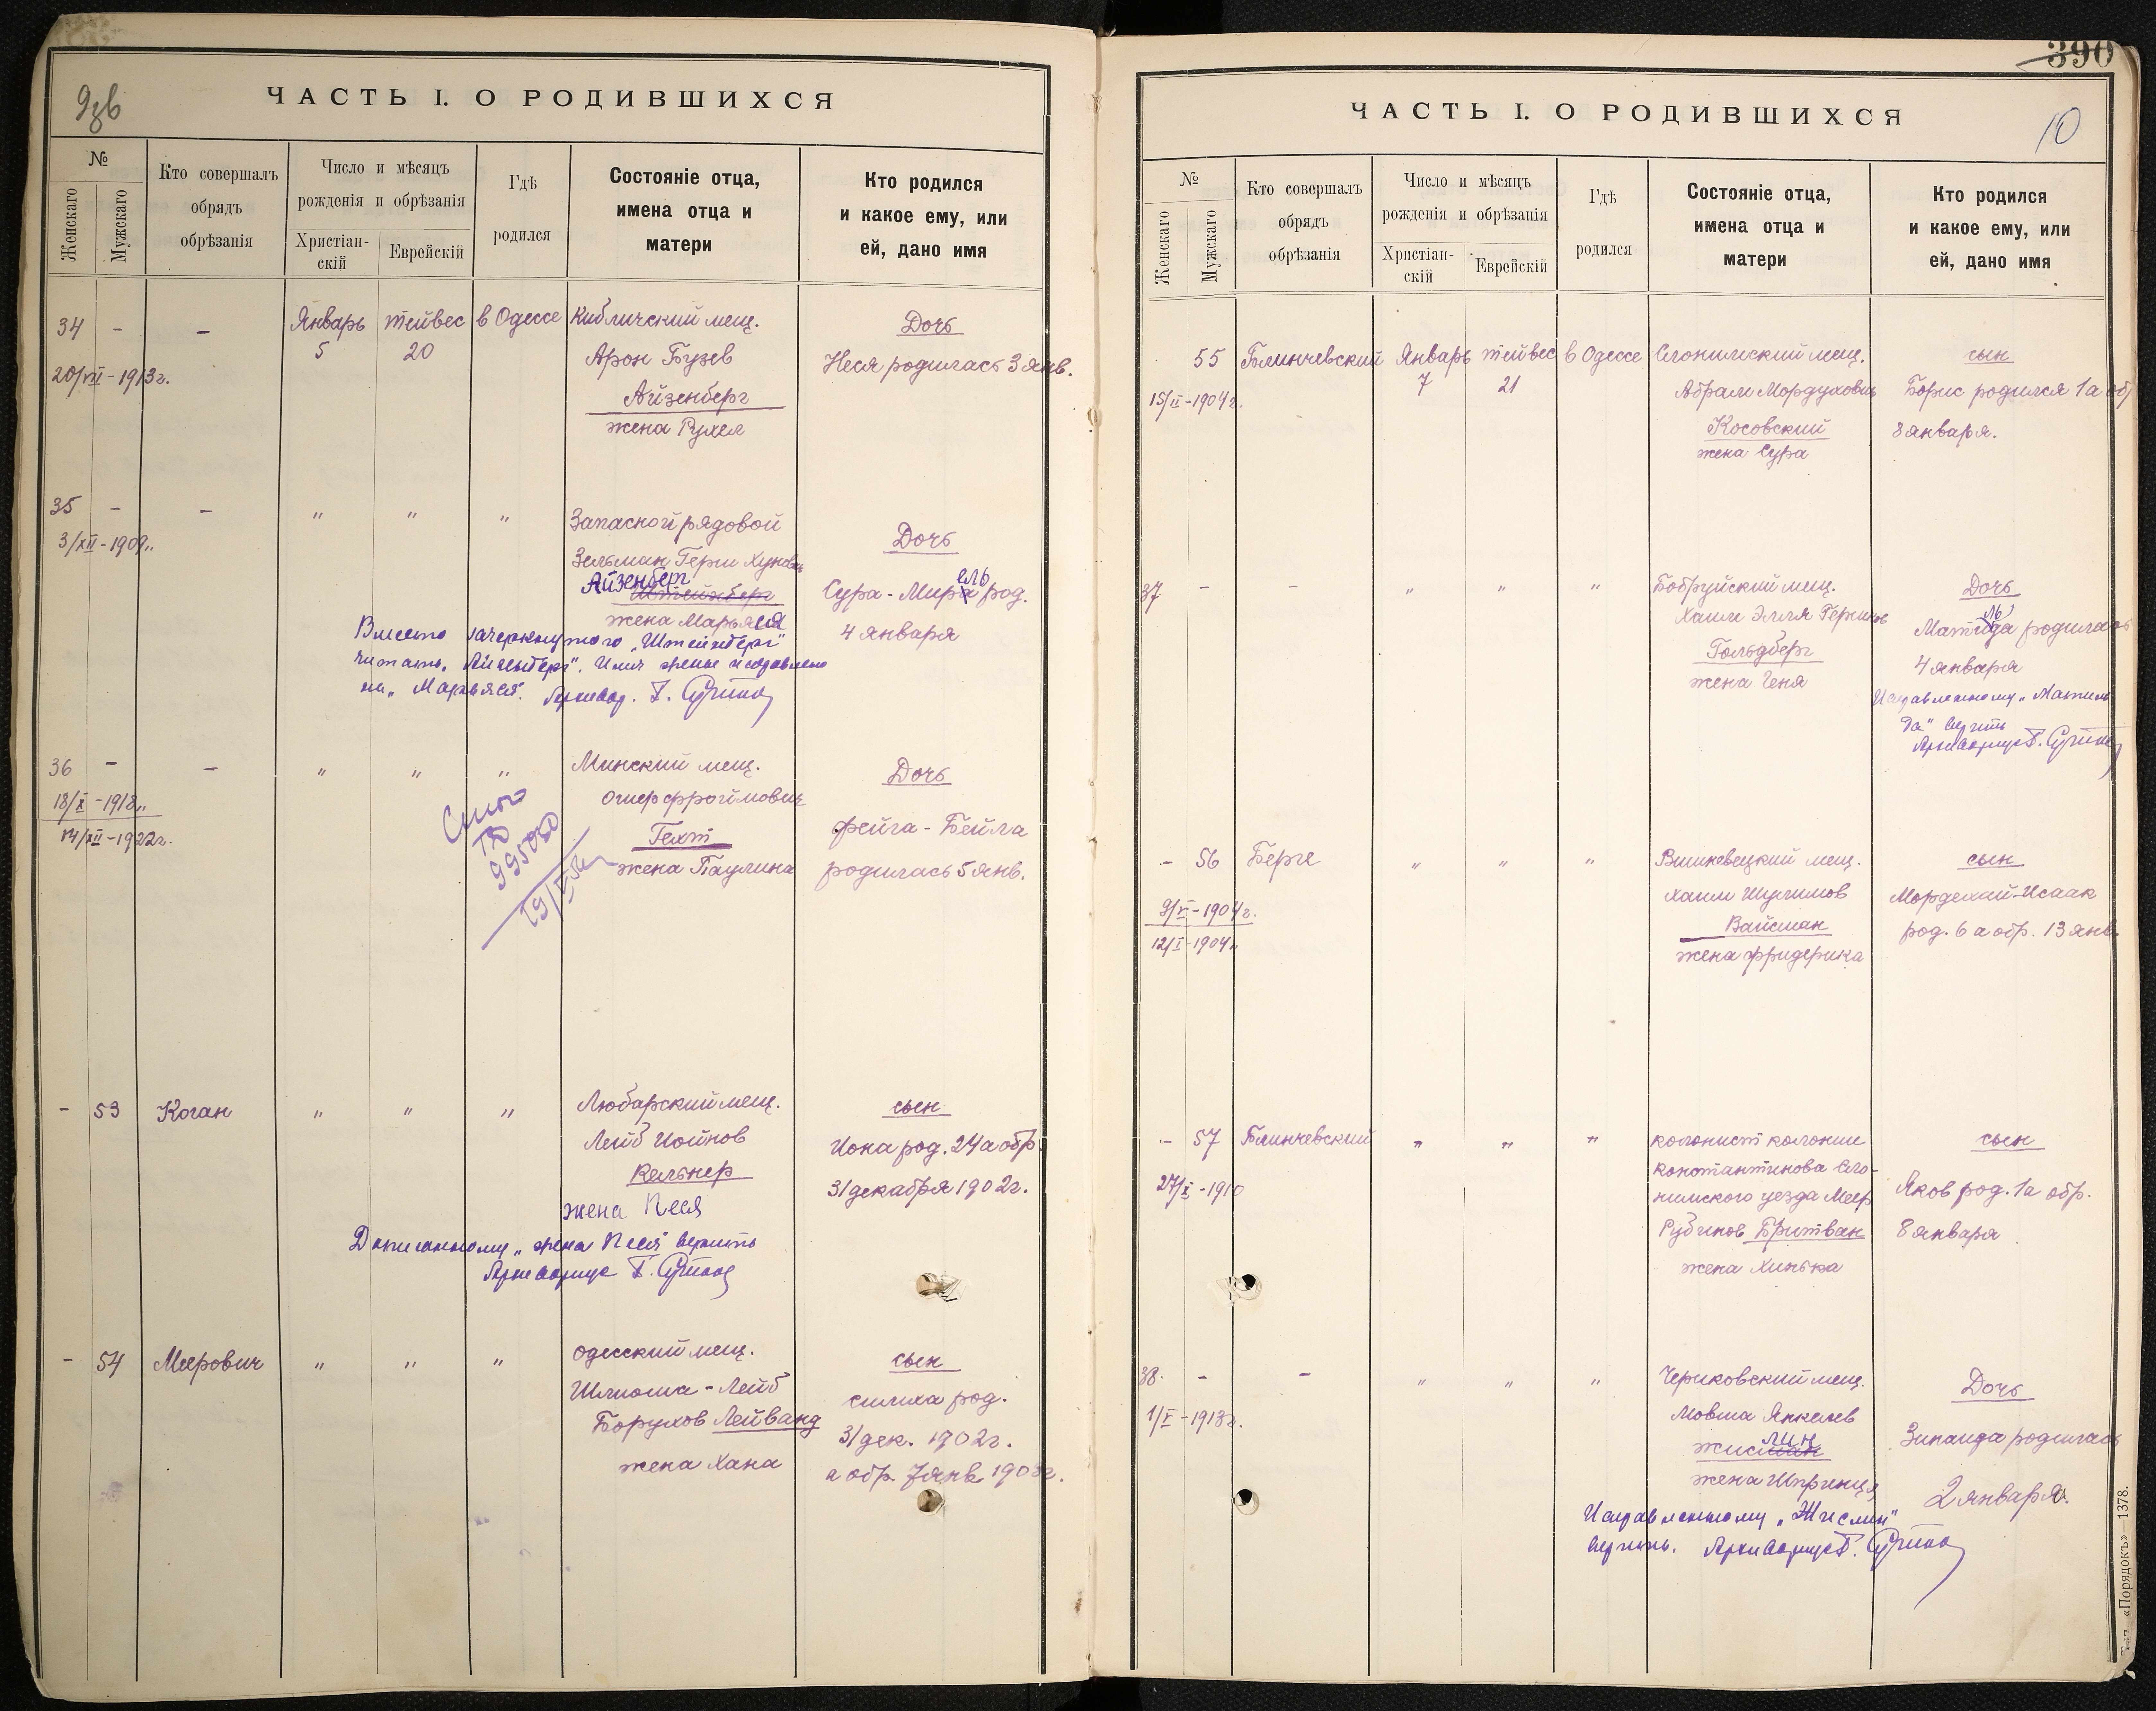 9зв
ЧАСТЬ I. О РОДИВШИХСЯ
№
Женскаго
Мужскаго
Кто совершалъ
обрядъ
обрѣзанія
Число и мѣсяцъ
рожденія и обрѣзанія
Христіан-
скій
Еврейскій
Гдѣ
родился
Состояніе отца,
имена отца и
матери
Кто родился
и какое ему, или
ей, дано имя
34 - - Январь тейвес в Одессе Кибличский мещ. Дочь
5 20 Арон Бузев Неся родилась 3 янв.
20/VII-1913г.
Айзенберг
жена Рухел
35 - - " " " Запасной рядовой Дочь
3/XII-1909..
Зельман Герш Хунов
Айзенберг
Штейнберг Сура-Мирель род.
жена Марьяся 4 января
Вместо зачеркнутого „Штейнберг"
читать „Айзенберг". Имя жены исправлено
на „Марьяся". Архивар.
36 - - " " " Минский мещ. Дочь
18/X-1918..
Ошер Фроймович
14/XII-1922г.
Гехт Фейга-Бейла
жена Паулина родилась 5 янв.
995080
- 53 Коган " " " Любарский мещ. сын
Лейб Иойнов Иона род. 24 а обр.
Кельнер 31 декабря 1902г.
жена Песя
Дописанному „жена Песя" верить
Архивариус
- 54 Меерович " " " одесский мещ. сын
Шлиома-Лейб симха род.
Борухов Лейванд 31 дек. 1902г.
жена Хана а обр. 7 янв. 1903г.
390
10
ЧАСТЬ I. О РОДИВШИХСЯ
№
Женскаго
Мужскаго
Кто совершалъ
обрядъ
обрѣзанія
Число и мѣсяцъ
рожденія и обрѣзанія
Христіан-
скій
Еврейскій
Гдѣ
родился
Состояніе отца,
имена отца и
матери
Кто родился
и какое ему, или
ей, дано имя
55 Блинчевский Январь тейвес в Одессе Слонимский мещ. сын
15/II-1904г. 7 21 Абрам Мордухович Борис родился 1 а обр
Косовский 8 января.
жена Сура
37 - - " " " Бобруйский мещ. Дочь
Хаим Элля Гершков Матильда родилась
Гольдберг 4 января
жена Геня
Исправленному „Матиль
да" верить
Архивариус
- 56 Берге " " " Вишневецкий мещ. сын
Хаим Шулимов Мордехай-Исаак
9/V-1904г.
Вайсман род. 6 а обр. 13 янв.
12/I-1904..
жена Фридерика
- 57 Блинчевский " " " колонист колонии сын
Константинова Сло-
27/X-1910
нимского уезда Меер Яков род. 1 а обр.
Рубинов Бритван 8 января
жена Хинька
38. - - " " " Чериковский мещ. Дочь
1/V-1913г.
Мовша Янкелев Зинаида родилась
лин
Жисман
жена Шпринця 2 января.
Исправленному „Жислин"
верить. Архивариус
«Порядокъ»—1378.